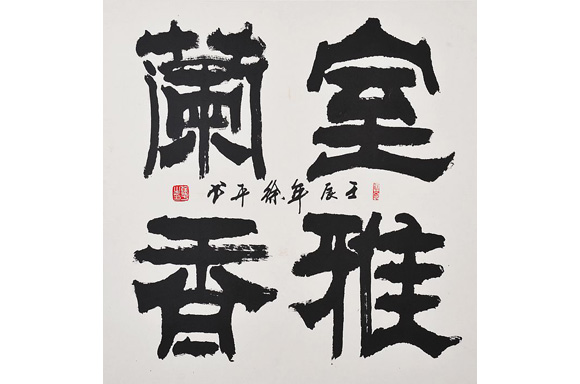 室雅
蘭香
壬辰年徐平书